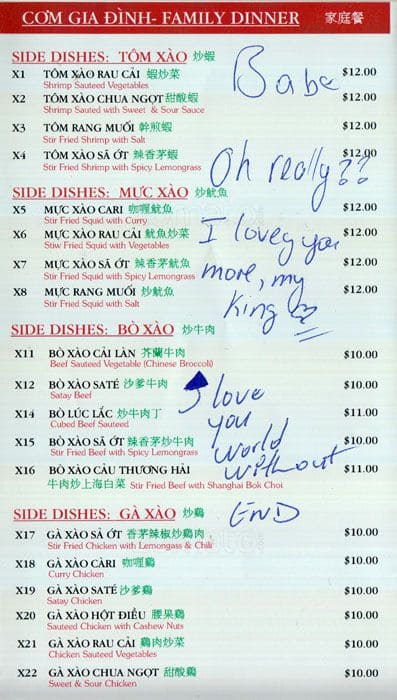 CƠM GIA ĐÌNH- FAMILY DINNER 家庭餐
SIDE DISHES: TÔM XÀO 炒蝦
Babe
X1 TÔM XÀO RAU CẢI 蝦炒菜 $12.00
Shrimp Sauteed Vegetables
X2 TÔM XÀO CHUA NGỌT 甜酸蝦 $12.00
Shrimp Sauted with Sweet & Sour Sauce
X3 TÔM RANG MUỐI 幹煎蝦 $12.00
Stir Fried Shrimp with Salt
X4 TÔM XÀO SÃ ỚT 辣香茅蝦 $12.00
Stir Fried Shrimp with Spicy Lemongrass
Oh really??
SIDE DISHES: MỰC XÀO 炒魷魚
X5 MỰC XÀO CARI 咖喱魷魚 $12.00
Stir Fried Squid with Curry
X6 MỰC XÀO RAU CẢI 魷魚炒菜 $12.00
Stiw Fried Squid with Vegetables
I lovey you
X7 MỰC XÀO SÃ ỚT 辣香茅魷魚 $12.00
Stir Fried Squid with Spicy Lemongrass
more, my
X8 MỰC RANG MUỐI 炒魷魚 $12.00
Stir Fried Squid with Salt
King
SIDE DISHES: BÒ XÀO 炒牛肉
X11 BÒ XÀO CẢI LÀN 芥蘭牛肉 $10.00
Beef Sauteed Vegetable (Chinese Broccoli)
X12 BÒ XÀO SATÉ 沙爹牛肉 $10.00
Satay Beef
I love
X14 BÒ LÚC LẮC 炒牛肉丁 $11.00
Cubed Beef Sauteed
you
X15 BÒ XÀO SÃ ỚT 辣香茅炒牛肉 $10.00
Stir Fried Beef with Spicy Lemongrass
World
X16 BÒ XÀO CẢU THƯƠNG HẢI $11.00
without
牛肉炒上海白菜 Stir Fried Beef with Shanghai Bok Choi
END
SIDE DISHES: GÀ XÀO 炒鷄
X17 GÀ XÀO SẢ ỚT 香茅辣椒炒鷄肉 $10.00
Stir Fried Chicken with Lemongass & Chili
X18 GÀ XÀO CÀRI 咖喱鷄 $10.00
Curry Chicken
X19 GÀ XÀO SATÉ 沙爹鷄 $10.00
Satay Chicken
X20 GÀ XÀO HỘT ĐIỀU 腰果鷄 $10.00
Sauteed Chicken with Cashew Nuts
X21 GÀ XÀO RAU CẢI 鷄肉炒菜 $10.00
Chicken with Vegetables
X22 GÀ XÀO CHUA NGỌT 甜酸鷄 $10.00
Sweet & Sour Chicken